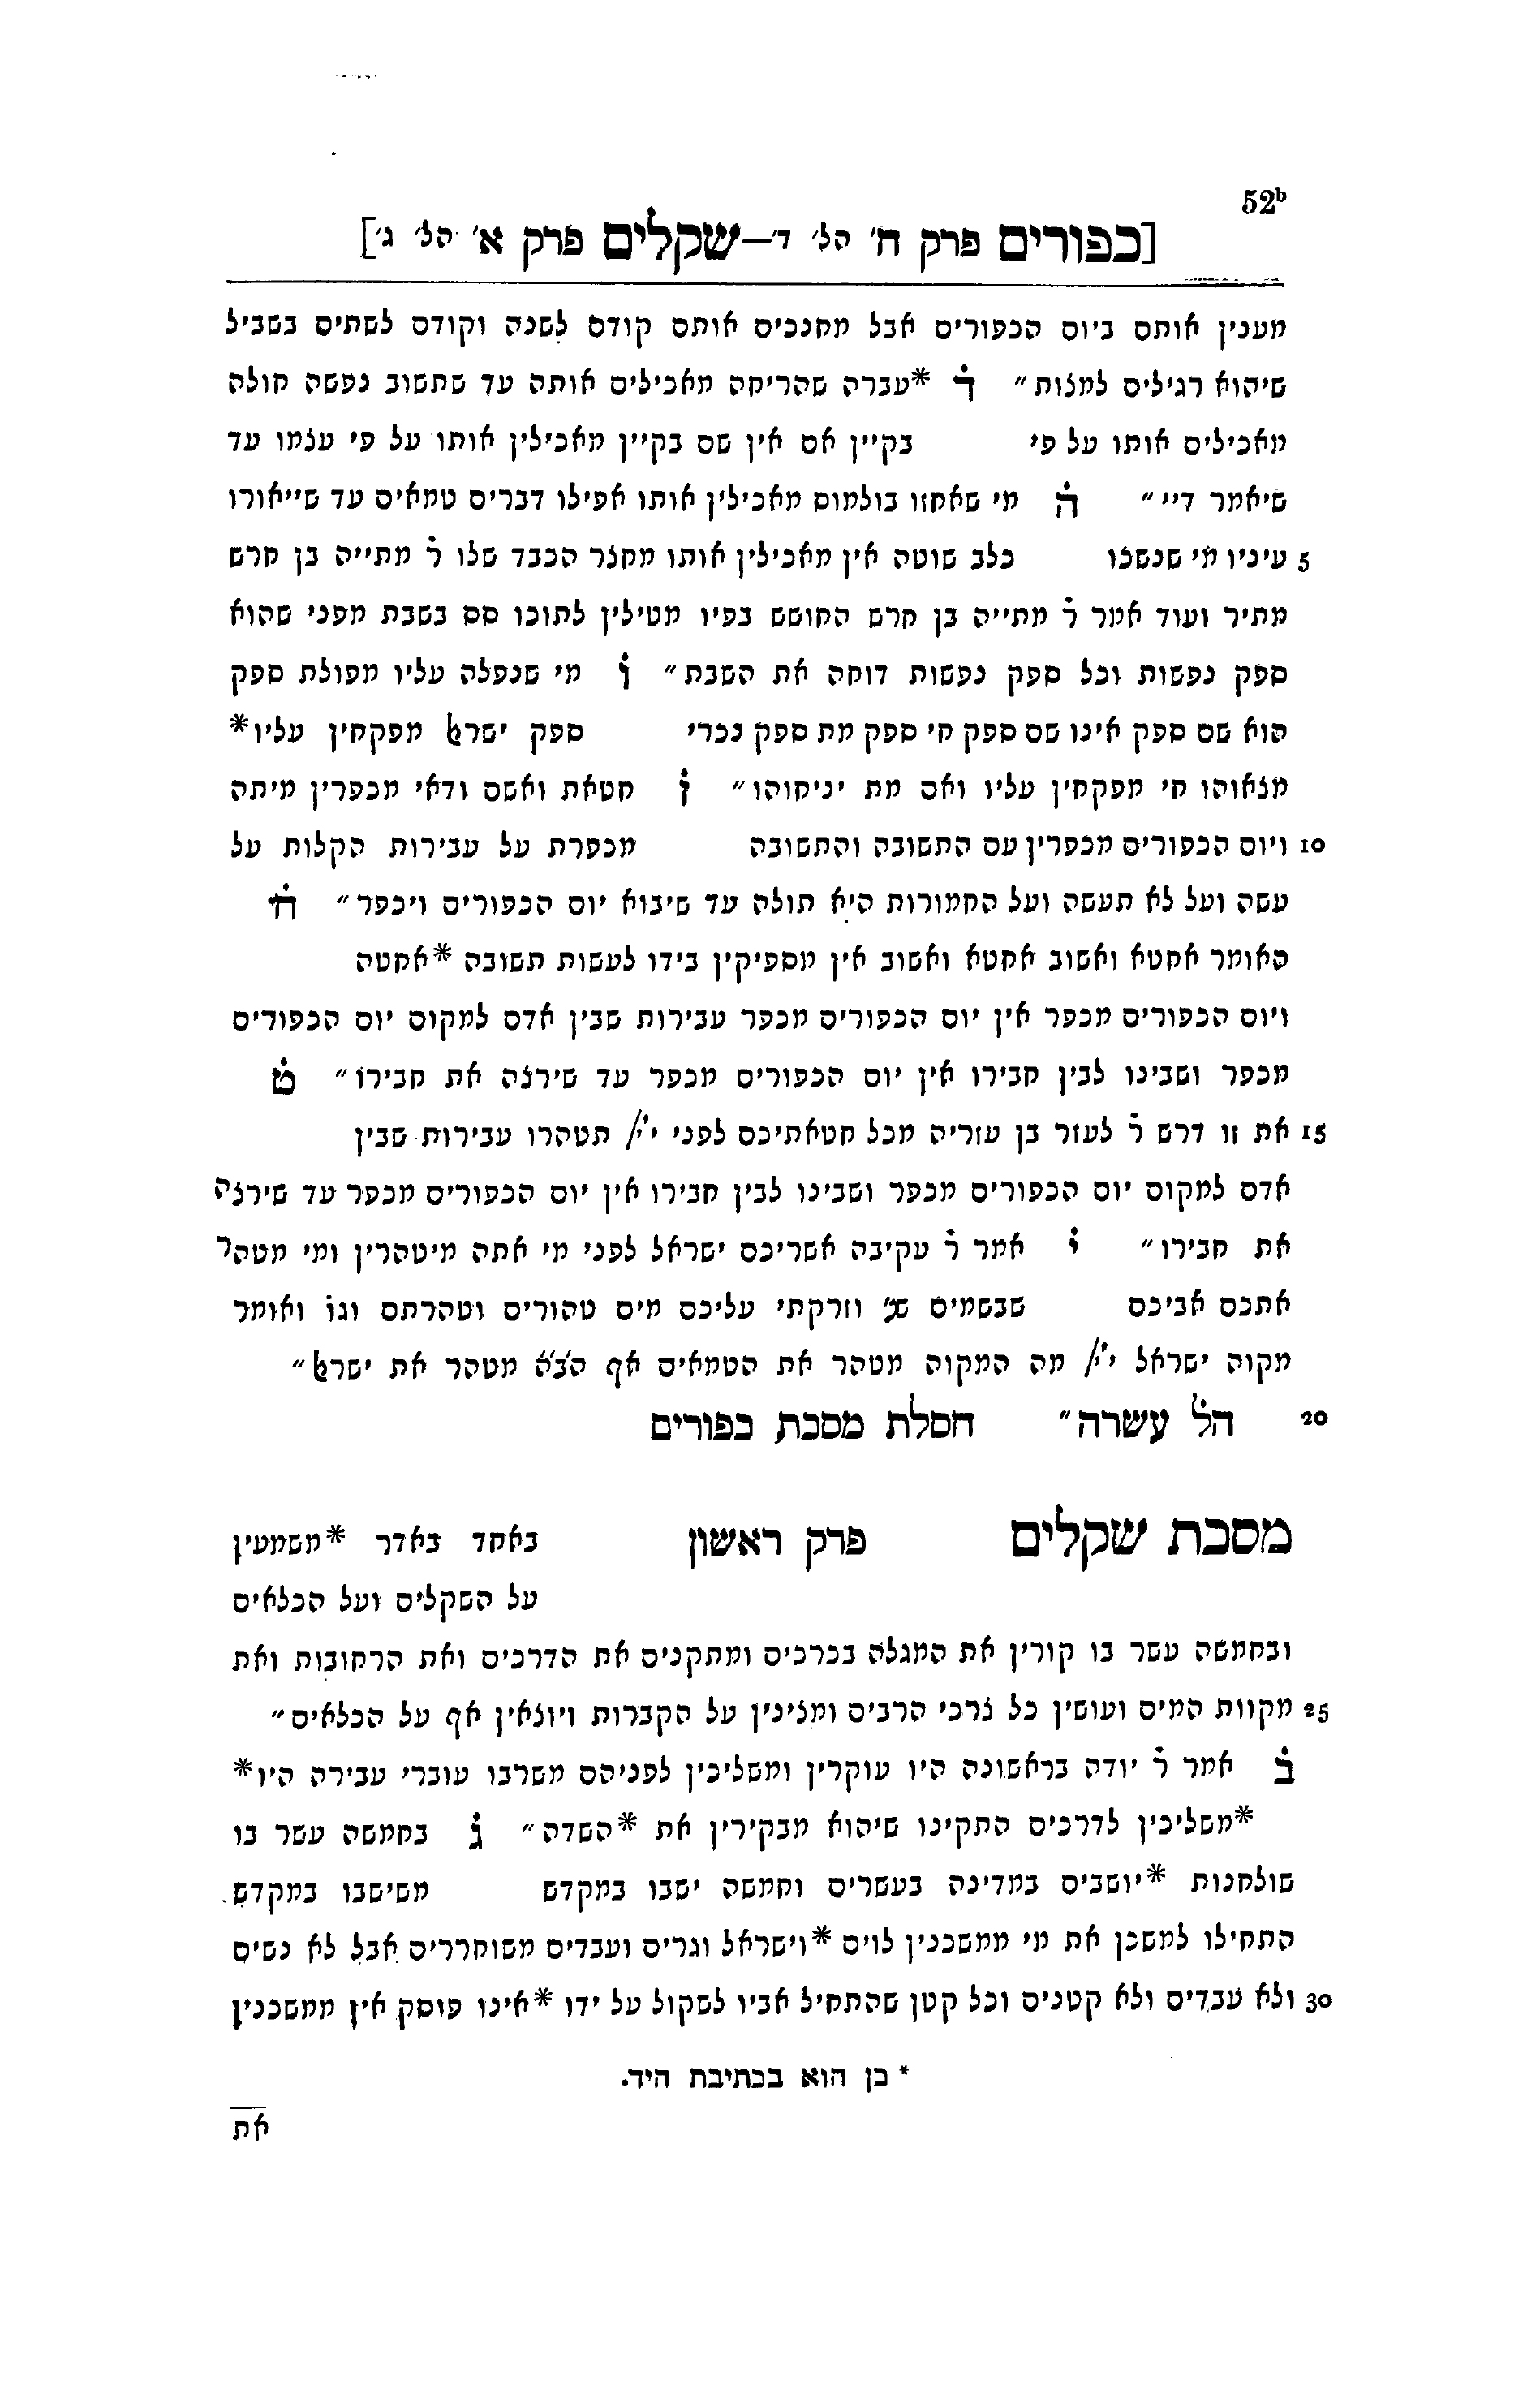 52ᵇ
[כפורים פרק ח׳ הל׳ ד׳—שקלים פרק א׳ הל׳ ג׳]
מענין אותם ביום הכפורים אבל מחנכים אותם קודם לשנה וקודם לשתים בשביל
שיהוא רגילים למצות״ ד *עברה שהריחה מאכילים אותה עד שתשוב נפשה חולה
מאכילים אותו על פי בקיין אם אין שם בקיין מאכילין אותו על פי עצמו עד
שיאמר דיי״ ה מי שאחזו בולמוס מאכילין אותו אפילו דברים טמאים עד שייאורו
5 עיניו מי שנשכו כלב שוטה אין מאכילין אותו מחצר הכבד שלו ר׳ מתייה בן חרש
מתיר ועוד אמר ר׳ מתייה בן חרש החושש בפיו מטילין לתוכו סם בשבת מפני שהוא
ספק נפשות וכל ספק נפשות דוחה את השבת״ ו מי שנפלה עליו מפולת ספק
הוא שם ספק אינו שם ספק חי ספק מת ספק נכרי ספק ישרﭏ מפקחין עליו*
מצאוהו חי מפקחין עליו ואם מת יניחוהו״ ז חטאת ואשם ודאי מכפרין מיתה
10 ויום הכפורים מכפרין עם התשובה והתשובה מכפרת על עבירות הקלות על
עשה ועל לא תעשה ועל החמורות היא תולה עד שיבוא יום הכפורים ויכפר״ ח
האומר אחטא ואשוב אחטא ואשוב אין מספיקין בידו לעשות תשובה *אחטה
ויום הכפורים מכפר אין יום הכפורים מכפר עבירות שבין אדם למקום יום הכפורים
מכפר ושבינו לבין חבירו אין יום הכפורים מכפר עד שירצה את חבירו״ ט
15 את זו דרש ר׳ לעזר בן עזריה מכל חטאתיכם לפני י״י/ תטהרו עבירות שבין
אדם למקום יום הכפורים מכפר ושבינו לבין חבירו אין יום הכפורים מכפר עד שירצה
את חבירו״ י אמר ר׳ עקיבה אשריכם ישראל לפני מי אתה מיטהרין ומי מטהר
אתכם אביכם שבשמים שנ׳ וזרקתי עליכם מים טהורים וטהרתם וגו׳ ואומר
מקוה ישראל י״י/ מה המקוה מטהר את הטמאים אף הב״ה מטהר את ישרﭏ״
20 הל׳ עשרה״ חסלת מסכת כפורים
מסכת שקלים פרק ראשון באחד באדר *משמעין
על השקלים ועל הכלאים
ובחמשה עשר בו קורין את המגלה בכרכים ומתקנים את הדרכים ואת הרחובות ואת
25 מקוות המים ועושין כל צרכי הרבים ומציינין על הקברות ויוצאין אף על הכלאים״
ב אמר ר׳ יודה בראשונה היו עוקרין ומשליכין לפניהם משרבו עוברי עבירה היו*
*משליכין לדרכים התקינו שיהוא מבקירין את *השדה״ ג בחמשה עשר בו
שולחנות *יושבים במדינה בעשרים וחמשה ישבו במקדש משישבו במקדש
התחילו למשכן את מי ממשכנין לוים *וישראל וגרים ועבדים משוחררים אבל לא נשים
30 ולא עבדים ולא קטנים וכל קטן שהתחיל אביו לשקול על ידו *אינו פוסק אין ממשכנין
* כן הוא בכתיבת היד.
את